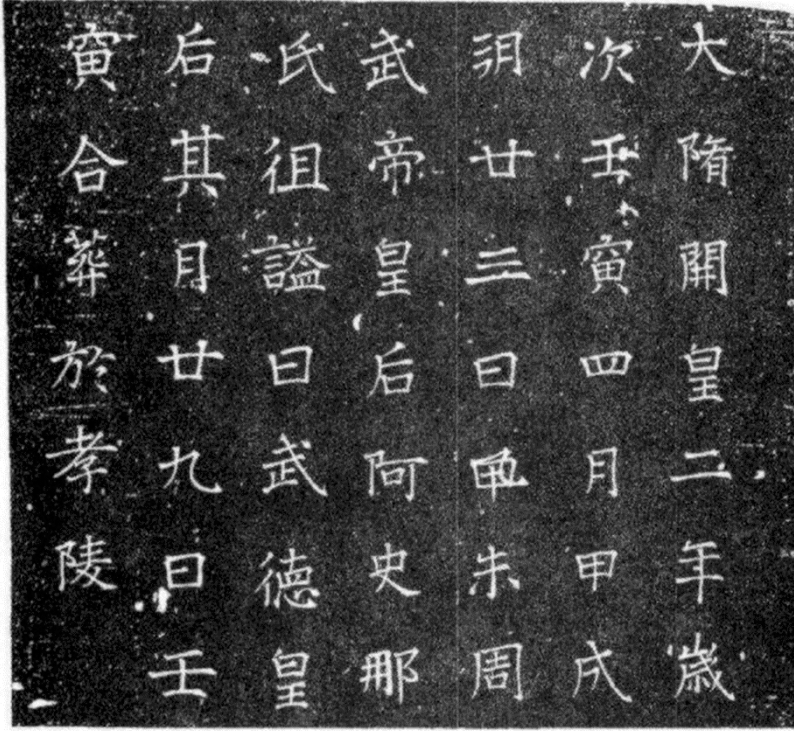 大隋開皇二年歳
次壬寅四月甲戌
朔廿三日甲未周
武帝皇后阿史那
氏徂謚曰武德皇
后其月廿九日壬
寅合葬於孝陵